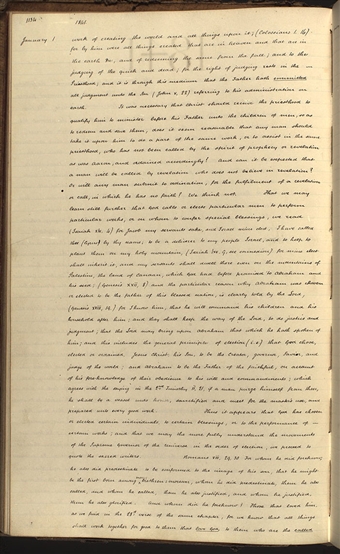 1841
January 1 work of creating the world and all things upon it; (Colossians 1. 16) -
for by him were all things created that are in heaven and that are in
the earth &c, and of redeeming the same from the fall; and to the
judging of the quick and dead; for the right of judging rests in the
Priesthood; and it is through this medium that the Father hath committed
all judgment unto the Son (John v, 22) referring to his administration on
earth. It was necessary that Christ should receive the priesthood to
qualify him to minister before his Father unto the children of men, so as
to redeem and save them; does it seem reasonable that any man should
take it upon him to do a part of the same work, or to assist in the same
priesthood, who has not been called by the spirit of prophecy or revelation
as was Aaron, and ordained accordingly? And can it be expected that
a man will be called by revelation who does not believe in revelation?
Or will any man submit to ordination, for the fulfilment of a revelation
or call, in which he has no faith? We think not. That we may
learn still further that God calls or elects particular men to perform
particular works, or on whom to confer special blessings, we read
(Isaiah xlv. 4) for Jacob my servants sake, and Israel mine elect, I have called
thee (Cyrus) by thy name, to be a deliverer to my people Israel, and to help to
plant them on my holy mountain, (Isaiah lxv. 9, see connexion) for mine elect
shall inherit it, and my servants shall dwell there even on the mountains of
Palestine, the land of Canaan, which God had before promised to Abraham and
his seed; (Genesis xvii, 8) and the particular reason why Abraham was chosen
or elected to be the father of this blessed nation, is clearly told by the Lord,
(Genesis xviii, 19.) for I know him, that he will command his children and his
household after him; and they shall keep the way of the Lord, to do justice and
judgment; that the Lord may bring upon Abraham that which he hath spoken of
him; and this includes the general principle of election (i.e) that God chose,
elected or ordained, Jesus Christ, his Son, to be the Creator, governor, Savior, and
judge of the world; and Abraham to be the Father of the faithful, on account
of his foreknowledge of their obedience to his will and commandments; which
agrees with the saying in the 2nd Timothy ii, 21, if a man purge himself from these,
he shall be a vessel unto honor, sanctified and meet for the master's use, and
prepared unto every good work. Thus it appears that God has chosen
or elected certain individuals to certain blessings, or to the performance of
certain works; and that we may the more fully understand the movements
of the Supreme Governor of the Universe in the order of election, we proceed to
quote the sacred writers. Romans viii, 29, 30. For whom he did foreknow,
he also did predestinate to be conformed to the image of his son, that he might
be the first born among many brethren; moreover, whom he did predestinate, them he also
called, and whom he called, them he also justified, and whom he justified,
them he also glorified. And whom did he foreknow? Those that loved him,
as we find in the 28th verse of the same chapter, for we know that all things
shall work together for good to them that love God, to them who are the called